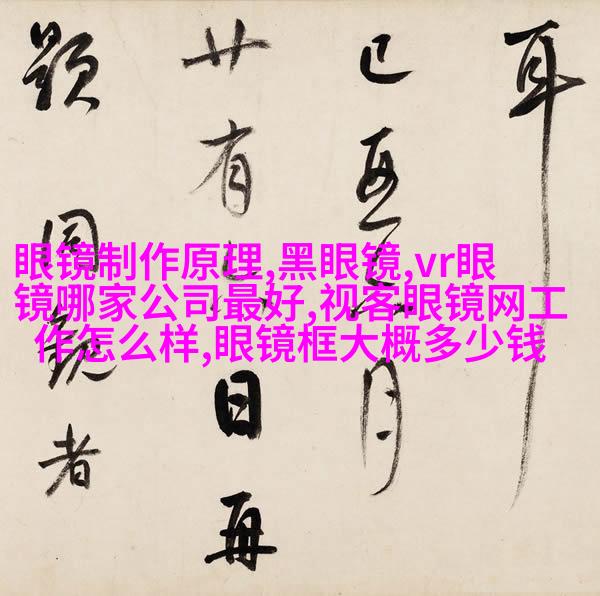 耳
月
廿有日再
題同觀者
眼镜制作原理,黑眼镜,vr眼
镜哪家公司最好,视客眼镜网工
作怎么样,眼镜框大概多少钱